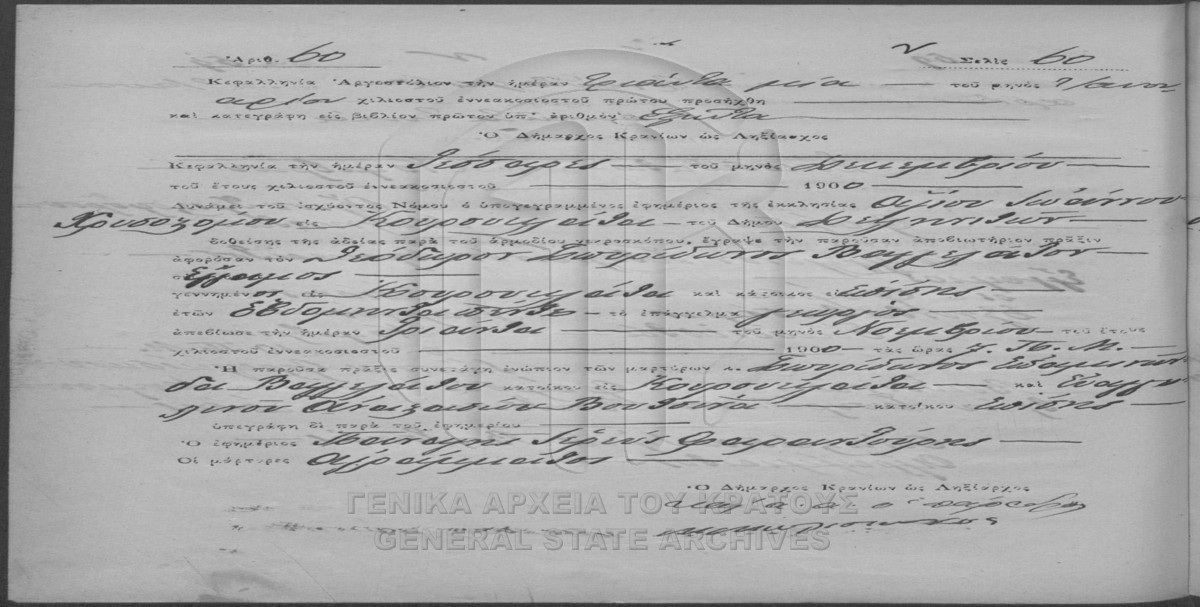 Ἀριθ. 60 Σελὶς 60
Κεφαλληνία Ἀργοστόλιον τὴν ἡμέραν τριάντα μία τοῦ μηνὸς Ἰανου
αρίου χιλιοστοῦ ἐννεακοσιοστοῦ πρώτου προσήχθη
καὶ κατεγράφη εἰς βιβλίον πρῶτον ὑπ' ἀριθμὸν ἑξῆντα
Ὁ Δήμαρχος Κρανίων ὡς Ληξίαρχος
Κεφαλληνία τὴν ἡμέραν τέσσαρες τοῦ μηνὸς Δεκεμβρίου
τοῦ ἔτους χιλιοστοῦ ἐννεακοσιοστοῦ 1900
Δυνάμει τοῦ ἰσχύοντος Νόμου ὁ ὑπογεγραμμένος ἐφημέριος τῆς ἐκκλησίας Ἁγίου Ἰωάννου
Χρυσοστόμου εἰς Κουρουκλάτα τοῦ Δήμου
δοθείσης τῆς ἀδείας παρὰ τοῦ ἁρμοδίου χειροσκόπου, ἔγραψε τὴν παροῦσαν ἀποβιωτήριον πρᾶξιν
ἀφορῶσαν τὸν Σπυρίδωνος Βαγγελάτον
ἔγγαμος
γεννημένος εἰς Κουρουκλάτα καὶ κάτοικος εἰς ἐπίσης
ἐτῶν ἑβδομηνταπέντε τὸ ἐπάγγελμα γεωργὸς
ἀπεβίωσε τὴν ἡμέραν τριάντα τοῦ μηνὸς Νοεμβρίου τοῦ ἔτους
χιλιοστοῦ ἐννεακοσιοστοῦ 1900 τὰς ὥρας Π. Μ.
Ἡ παροῦσα πρᾶξις συνετάγη ἐνώπιον τῶν μαρτύρων κ. Σπυρίδωνος Ἐπαμινών
δα Βαγγελάτου κατοίκου εἰς Κουρουκλάτα καὶ Εὐαγγε
λινοῦ Ἀναστασίου Βουτσινᾶ κατοίκου ἐπίσης
ὑπεγράφη δὲ παρὰ τοῦ ἐφημερίου
Ὁ ἐφημέριος Παναγῆς Ἱερεὺς
Οἱ μάρτυρες ἀγράμματοι
Ὁ Δήμαρχος Κρανίων ὡς Ληξίαρχος
ΓΕΝΙΚΑ ΑΡΧΕΙΑ ΤΟΥ ΚΡΑΤΟΥΣ
GENERAL STATE ARCHIVES